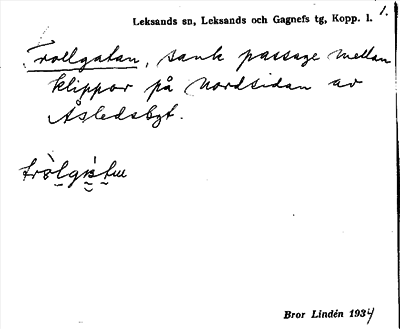 1.
Leksands sn, Leksands och Gagnefs tg, Kopp. l.
Trollgatan, sank passage mellan
klippor på nordsidan av
Åsledsbgt.
Bror Lindén 1934